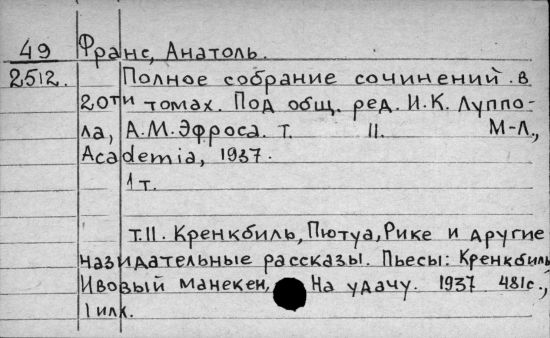 49 Франс, Анатоль.
2512. Полное собрание сочинений в
20ти томах. Под общ. ред. И.К. Луппо-
ла, А.М. Эфроса. Т. II. М-Л.,
Academia, 1937.
1 т.
т.II. Кренкбиль, Пютуа, Рике и другие
назидательные рассказы. Пьесы: Кренкбиль
Ивовый манекен, На удачу. 1937 481с.,
1 илл.